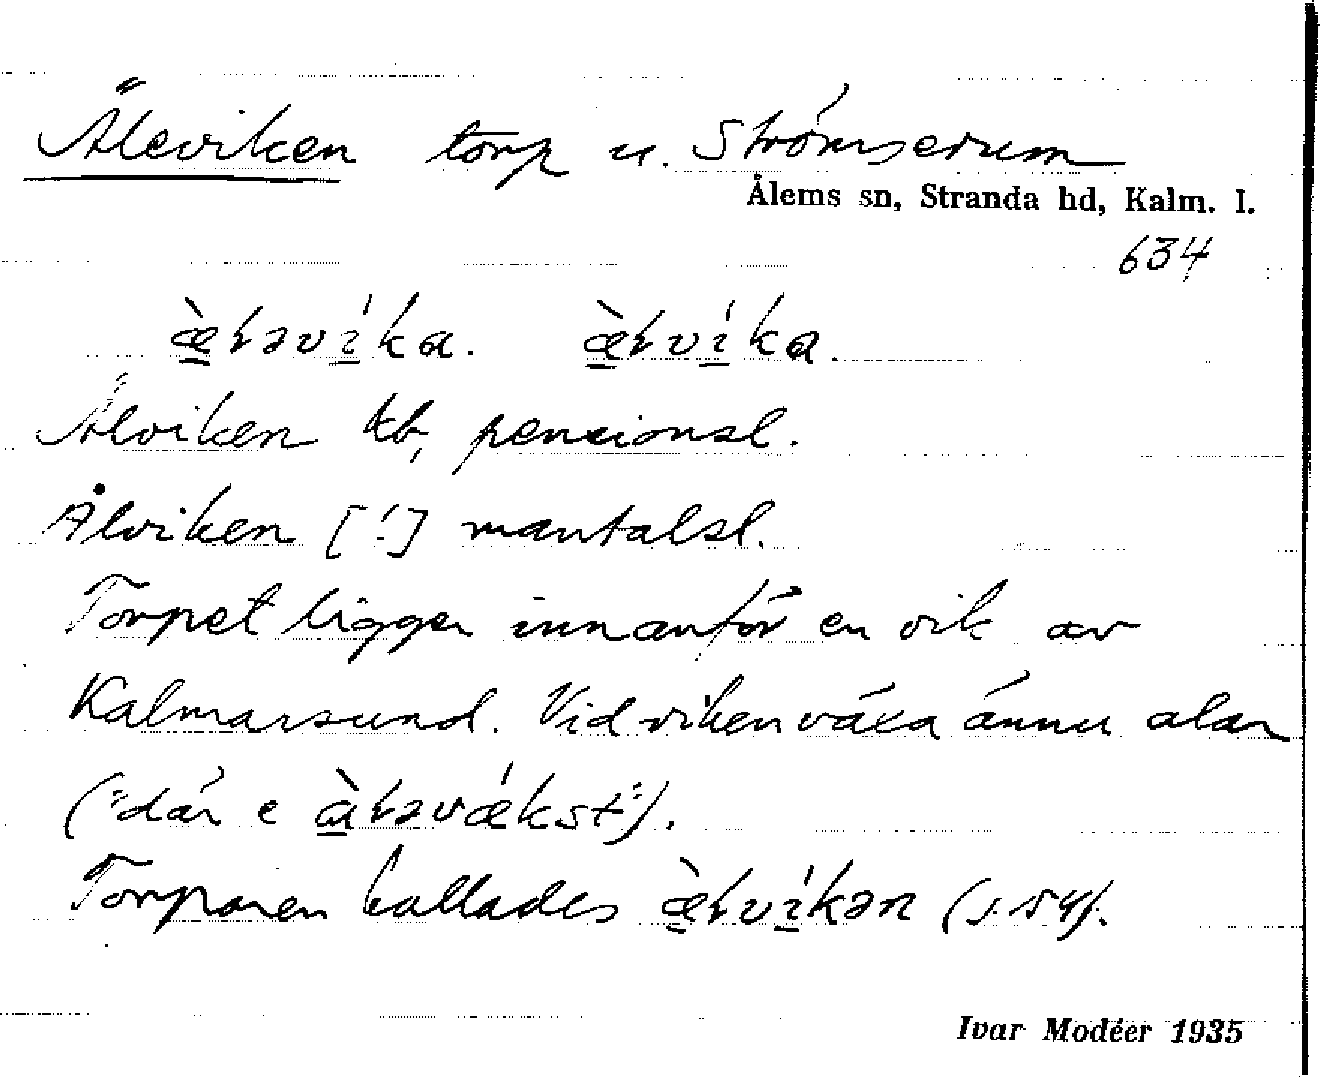 Äleviken torp u. Strömserum
Ålems sn, Stranda hd, Kalm. l.
634
æ̀ɫəvíka. æ̀ɫvíka.
Älviken kb, pensionsl.
Ålviken [!] mantalsl.
Torpet ligger innanför en vik av
Kalmarsund. Vid viken växa ännu alar
("där e àɫəvækst").
Torparen kallades æ̀ɫvíkən
Ivar Modéer 1935